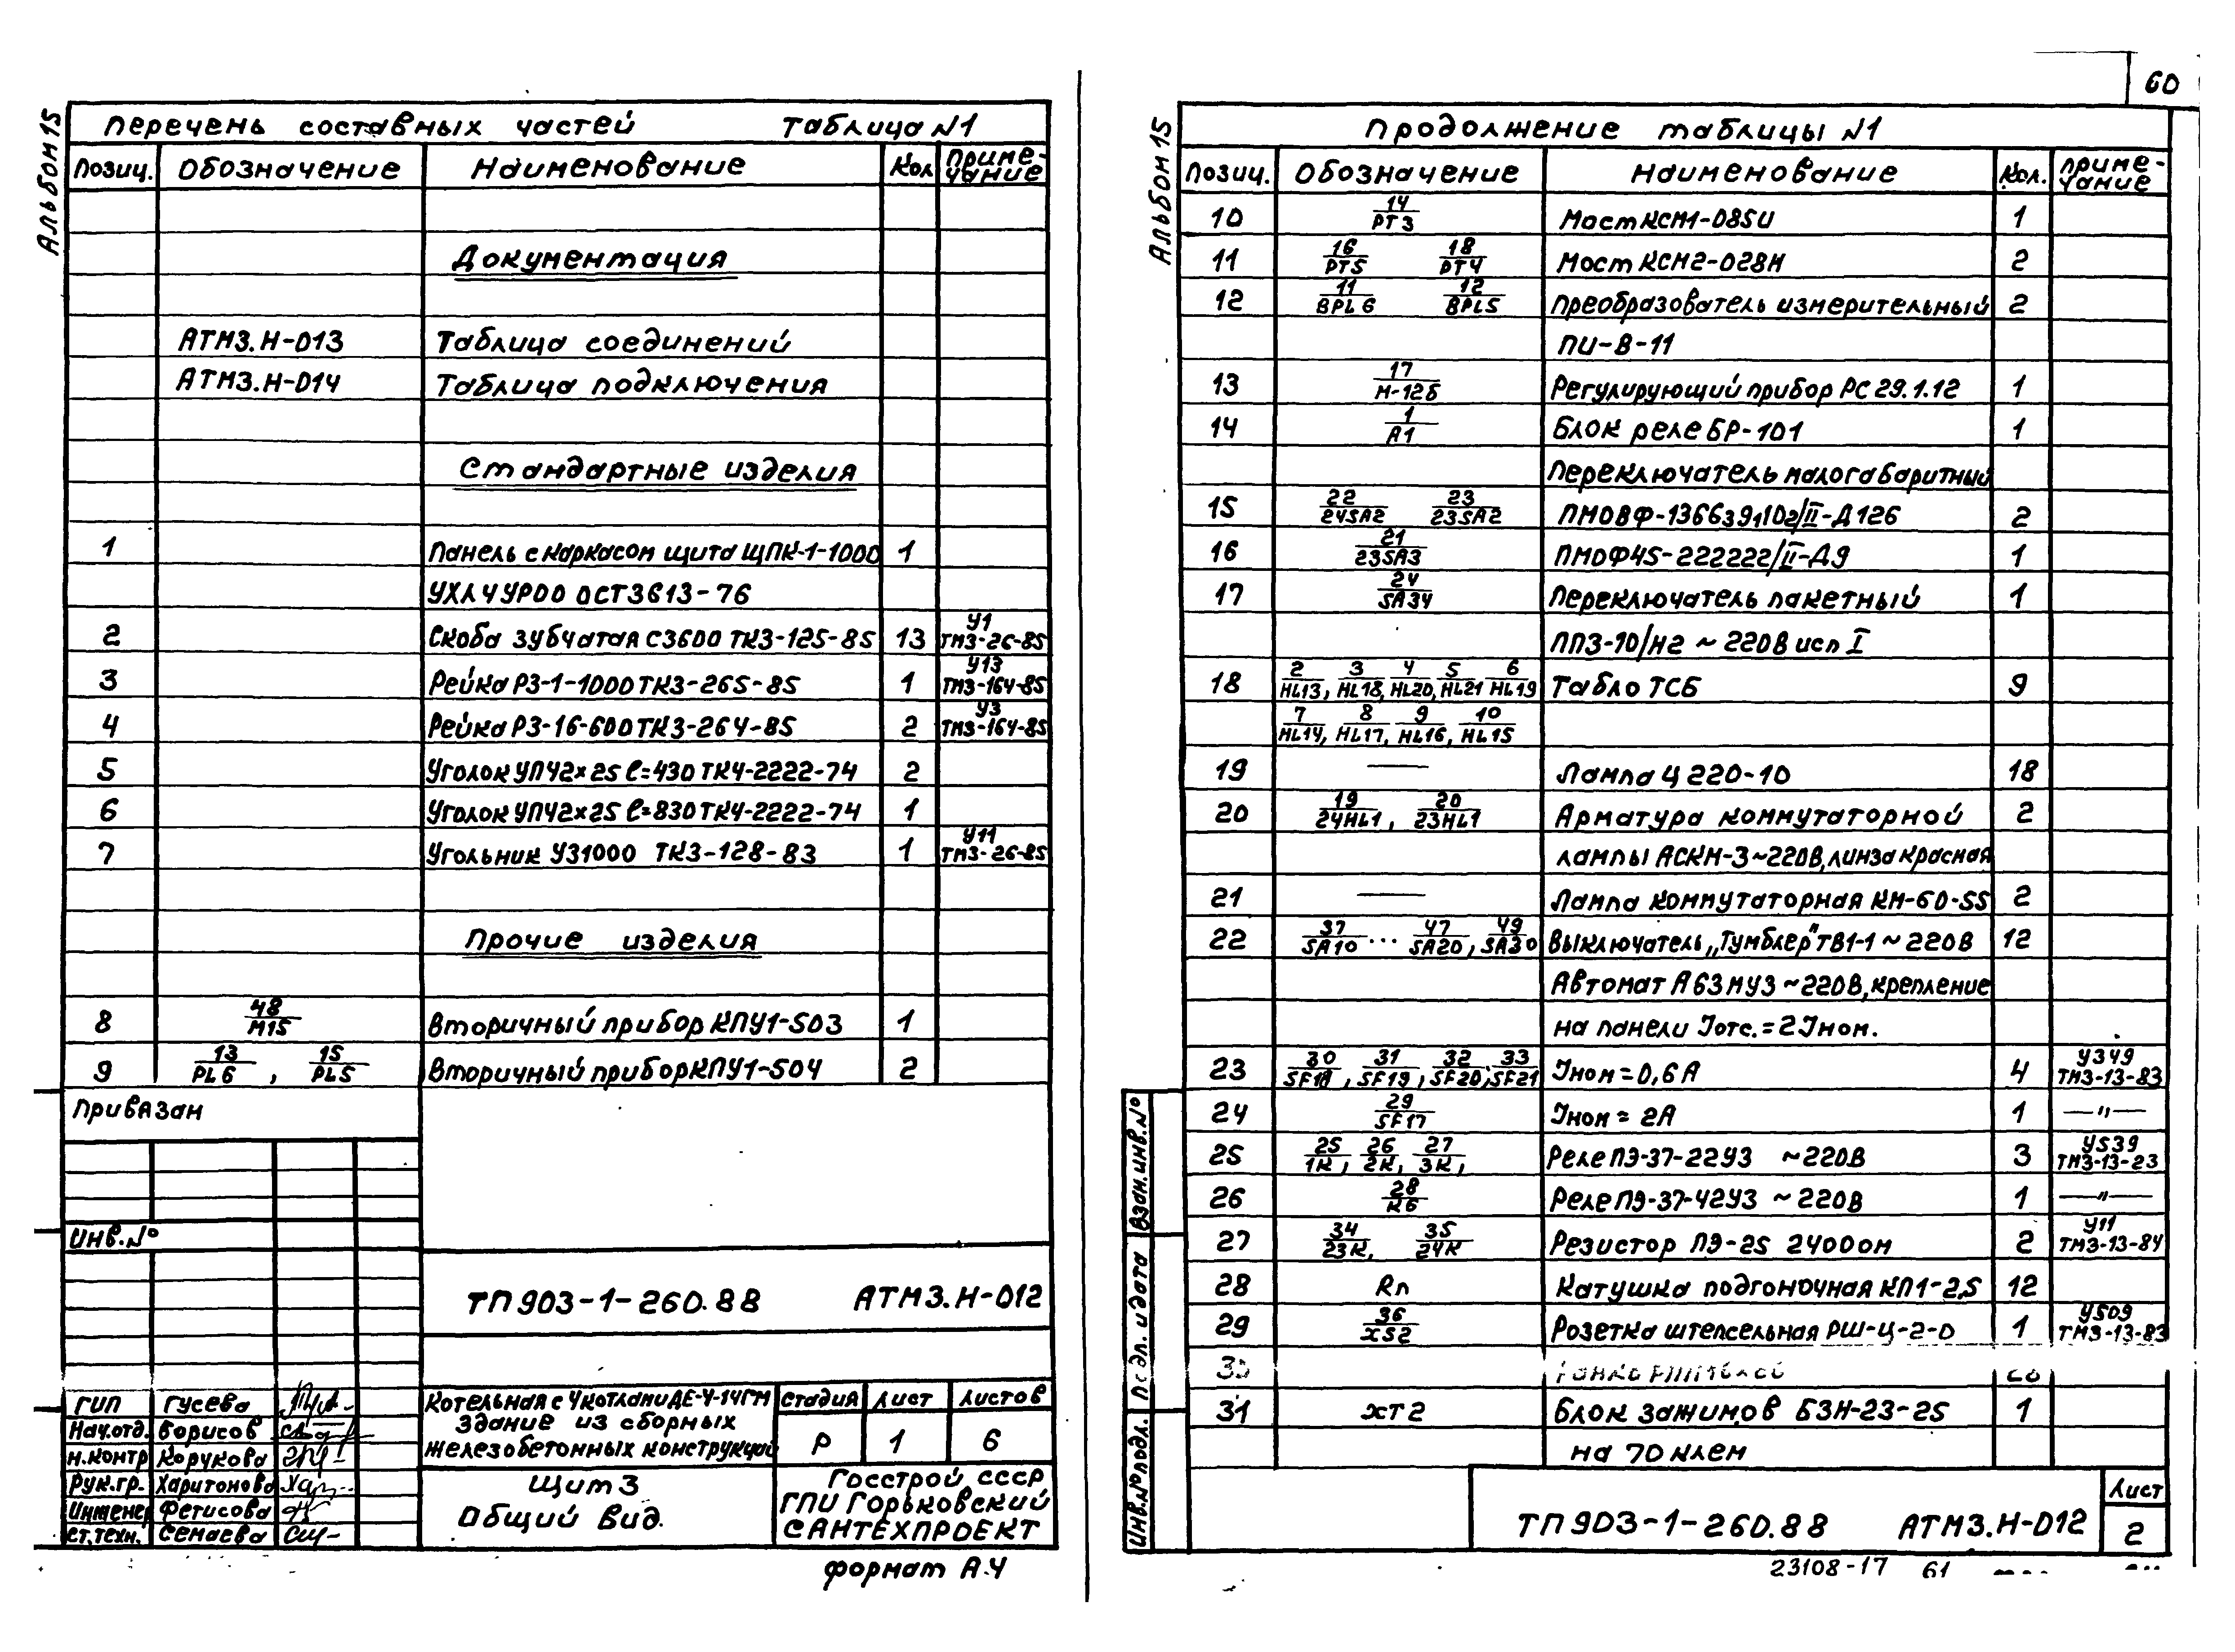 Альбом 15
Перечень составных частей Таблица №1
Позиц. Обозначение Наименование Кол Приме-чание
Документация
АТМ3.Н-013 Таблица соединений
АТМ3.Н-014 Таблица подключения
Стандартные изделия
1 Панель с каркасом щита ЩПК-1-1000 1
УХЛ4УР00 ОСТ3613-76
2 Скоба зубчатая С3600 ТК3-125-85 13 У1 ТМ3-26-85
3 Рейка Р3-1-1000 ТК3-265-85 1 У13 ТМ3-164-85
4 Рейка Р3-16-600 ТК3-264-85 2 У3 ТМ3-164-85
5 Уголок УП42×25 ℓ=430 ТК4-2222-74 2
6 Уголок УП42×25 ℓ=830 ТК4-2222-74 1
7 Угольник У31000 ТК3-128-83 1 У11 ТМ3-26-85
Прочие изделия
8 48/М15 Вторичный прибор КПУ1-503 1
9 13/PL6, 15/PL5 Вторичный прибор КПУ1-504 2
Привязан
Инв.№
ТП 903-1-260.88 АТМ3.Н-012
ГИП Гусева
Нач.отд. Борисов
Н.контр Корукова
Рук.гр. Харитонова
Инженер Фетисова
Ст.техн. Семаева
Котельная с 4 котлами ДЕ-4-14ГМ
Здание из сборных
железобетонных конструкций
Стадия Лист Листов
Р 1 6
Щит 3
Общий вид.
Госстрой СССР
ГПИ Горьковский
САНТЕХПРОЕКТ
формат А.4
60
Альбом 15
Продолжение таблицы №1
Позиц. Обозначение Наименование Кол. Приме-чание
10 14/РТ3 Мост КСМ1-085И 1
11 16/РТ5 18/РТ4 Мост КСМ2-028Н 2
12 11/BPL6 12/BPL5 Преобразователь измерительный 2
ПИ-В-11
13 17/Н-12б Регулирующий прибор РС 29.1.12 1
14 1/А1 Блок реле БР-101 1
Переключатель малогабаритный
15 22/24SA2 23/23SA2 ПМОВФ-1366391102/II-Д126 2
16 21/23SA3 ПМОФ45-222222/II-Д9 1
17 24/SA34 Переключатель пакетный 1
ПП3-10/Н2 ~220В исп I
18 2/HL13, 3/HL18, 4/HL20, 5/HL21 6/HL19 Табло ТСБ 9
7/HL14, 8/HL17, 9/HL16, 10/HL15
19 — Лампа Ц 220-10 18
20 19/24HL1, 20/23HL1 Арматура коммутаторной 2
лампы АСКМ-3~220В, линза красная
21 — Лампа коммутаторная КМ-60-55 2
22 37/SA10 ... 47/SA20, 49/SA30 Выключатель „Тумблер" ТВ1-1 ~220В 12
Автомат А63МУ3 ~220В, крепление
на панели Iотс.=2Iном.
23 30/SF18, 31/SF19, 32/SF20, 33/SF21 Iном=0,6А 4 У349 ТМ3-13-83
24 29/SF17 Iном = 2А 1 —"—
25 25/1К, 26/2К, 27/3К, Реле ПЭ-37-22У3 ~220В 3 У539 ТМ3-13-23
26 28/К6 Реле ПЭ-37-42У3 ~220В 1 —"—
27 34/23К, 35/24К Резистор ПЭ-25 2400ом 2 У11 ТМ3-13-84
28 Rп Катушка подгоночная КП1-2,5 12
29 36/XS2 Розетка штепсельная РШ-Ц-2-0 1 У509 ТМ3-13-83
31 ХТ2 Блок зажимов БЗН-23-25 1
на 70 клем
Взам.инв.№
Подп. и дата
Инв.№подл.
ТП 903-1-260.88 АТМ3.Н-012
Лист
2
23108-17 61